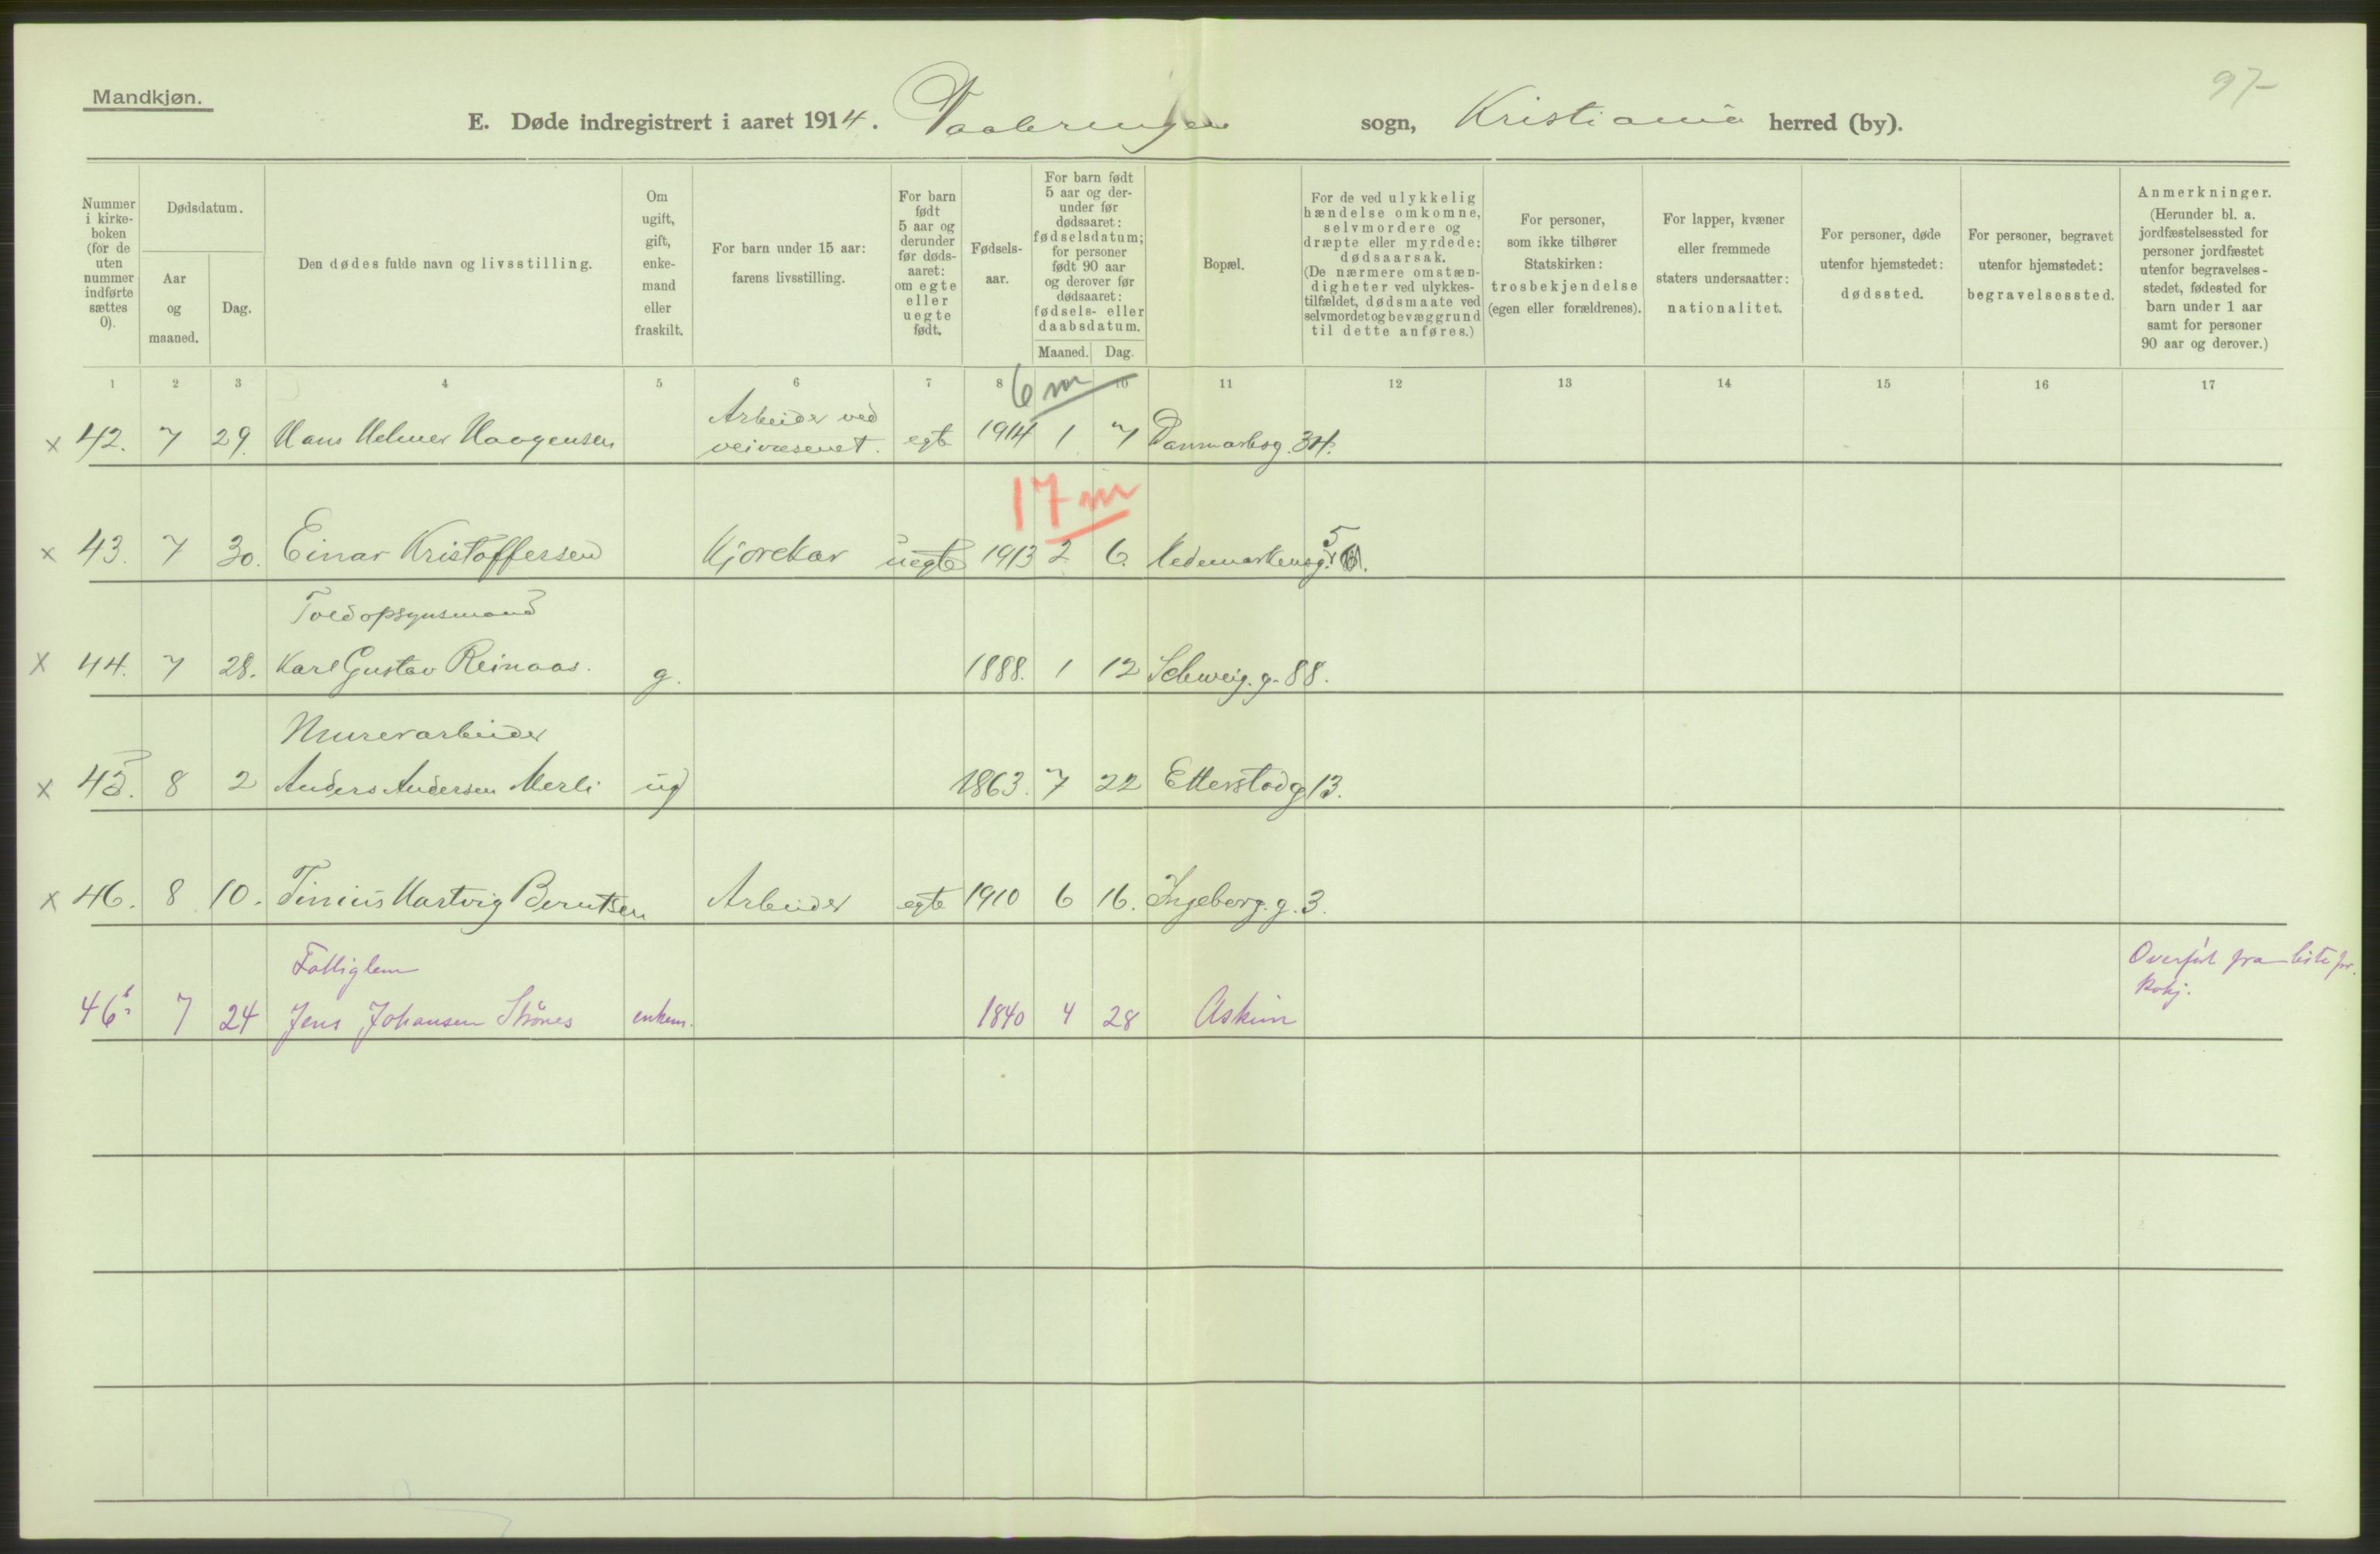 Mandkjøn.
97
E. Døde indregistrert i aaret 1914. Vaalerengen sogn, Kristiania herred (by).
Nummer i kirke-boken (for de uten nummer indførte sættes 0).
Dødsdatum.
Aar og maaned.
Dag.
Den dødes fulde navn og livsstilling.
Om ugift, gift, enke-mand eller fraskilt.
For barn under 15 aar: farens livsstilling.
For barn født 5 aar og derunder før døds-aaret: om egte eller uegte født.
Fødsels-aar.
For barn født 5 aar og der-under før dødsaaret: fødselsdatum; for personer født 90 aar og derover før dødsaaret: fødsels- eller daabsdatum.
Maaned. Dag.
Bopæl.
For de ved ulykkelig hændelse omkomne, selvmordere og dræpte eller myrdede: dødsaarsak. (De nærmere omstæn-digheter ved ulykkes-tilfældet, dødsmaate ved selvmordet og bevæggrund til dette anføres.)
For personer, som ikke tilhører Statskirken: trosbekjendelse (egen eller forældrenes).
For lapper, kvæner eller fremmede staters undersaatter: nationalitet.
For personer, døde utenfor hjemstedet: dødssted.
For personer, begravet utenfor hjemstedet: begravelsessted.
Anmerkninger. (Herunder bl. a. jordfæstelsessted for personer jordfæstet utenfor begravelses-stedet, fødested for barn under 1 aar samt for personer 90 aar og derover.)
1 2 3 4 5 6 7 8 10 11 12 13 14 15 16 17
6 m
x 42. 7 29. Hans Helmer Haagensen Arbeider ved veivæsenet. egte 1914 1 7 Danmarksg. 34.
17 m
x 43. 7 30. Einar Kristoffersen Kjørekar uegte 1913 2 6. Hedemarkensg. 5
Toldopsynsmand
x 44. 7 28. Karl Gustav Reinaas. g. 1888. 1 12 Schweig. g. 88.
Murerarbeider
x 45. 8 2 Anders Andersen Merli ug 1863. 7 22 Etterstadg 13.
x 46. 8 10. Tinius Hartvig Berntsen Arbeider egte 1910 6 16. Ingeborg. g. 3.
Fattiglem
46b. 7 24 Jens Johansen Strønes enkem. 1840 4 28 Askim Overført fra liste for